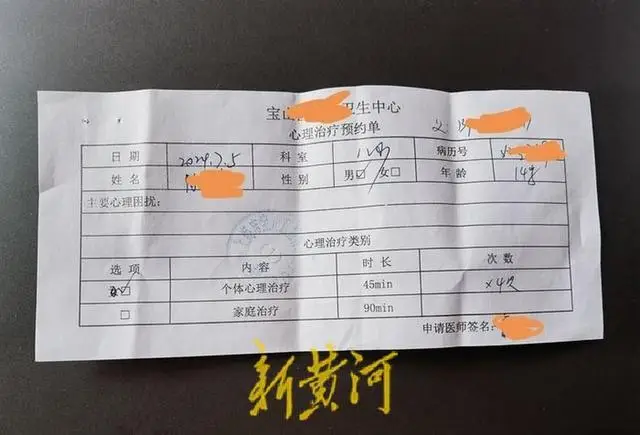 宝山 卫生中心
心理治疗预约单
日期 2024.7.5 科室 病历号
姓名 性别 男□ 女□ 年龄 14岁
主要心理困扰:
心理治疗类别
选项 内容 时长 次数
□ 个体心理治疗 45min ×4次
□ 家庭治疗 90min
申请医师签名:
新黄河